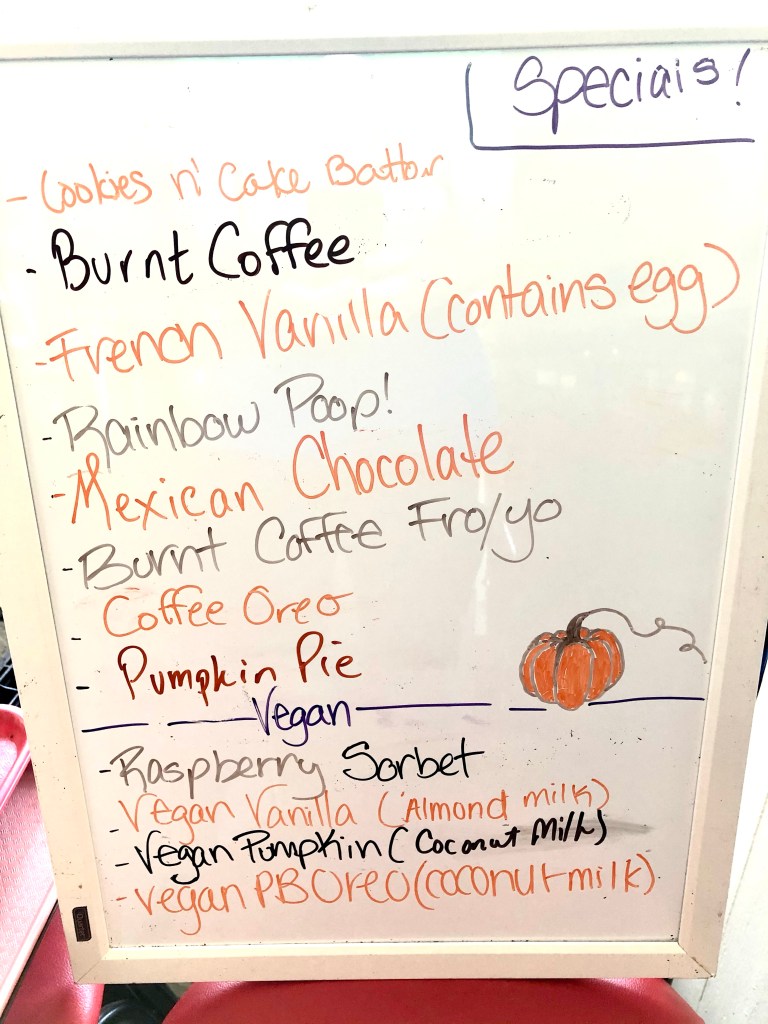 Specials!
- Cookies n' Cake Batter
- Burnt Coffee
- French Vanilla (contains egg)
- Rainbow Poop!
- Mexican Chocolate
- Burnt Coffee Fro/yo
- Coffee Oreo
- Pumpkin Pie
Vegan
- Raspberry Sorbet
- Vegan Vanilla (Almond milk)
- Vegan Pumpkin (Coconut Milk)
- Vegan PB Oreo (coconut milk)
Quartet